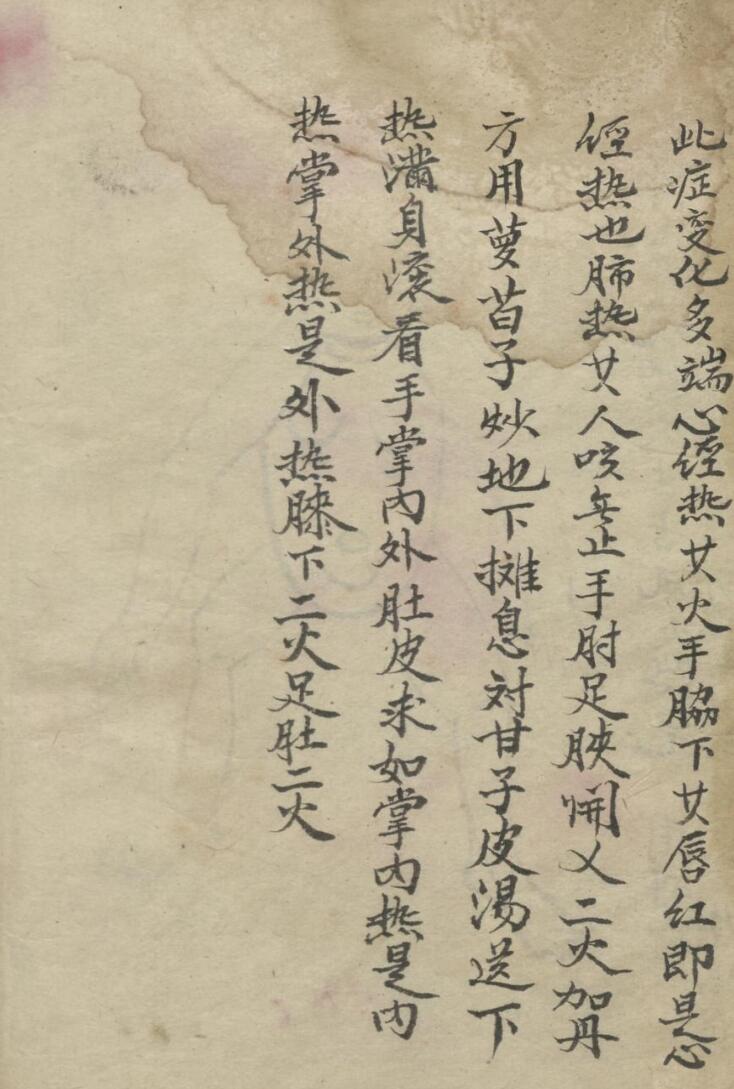 此症变化多端心经热女火手脇下女唇红即是心
经热也肺热女人咳無止手肘足腴開乂二火加丹
方用萝苩子炒地下摊息対甘子皮湯送下
热满身滚看手掌内外肚皮求如掌内热是内
热掌外热是外热膝下二火足肚二火